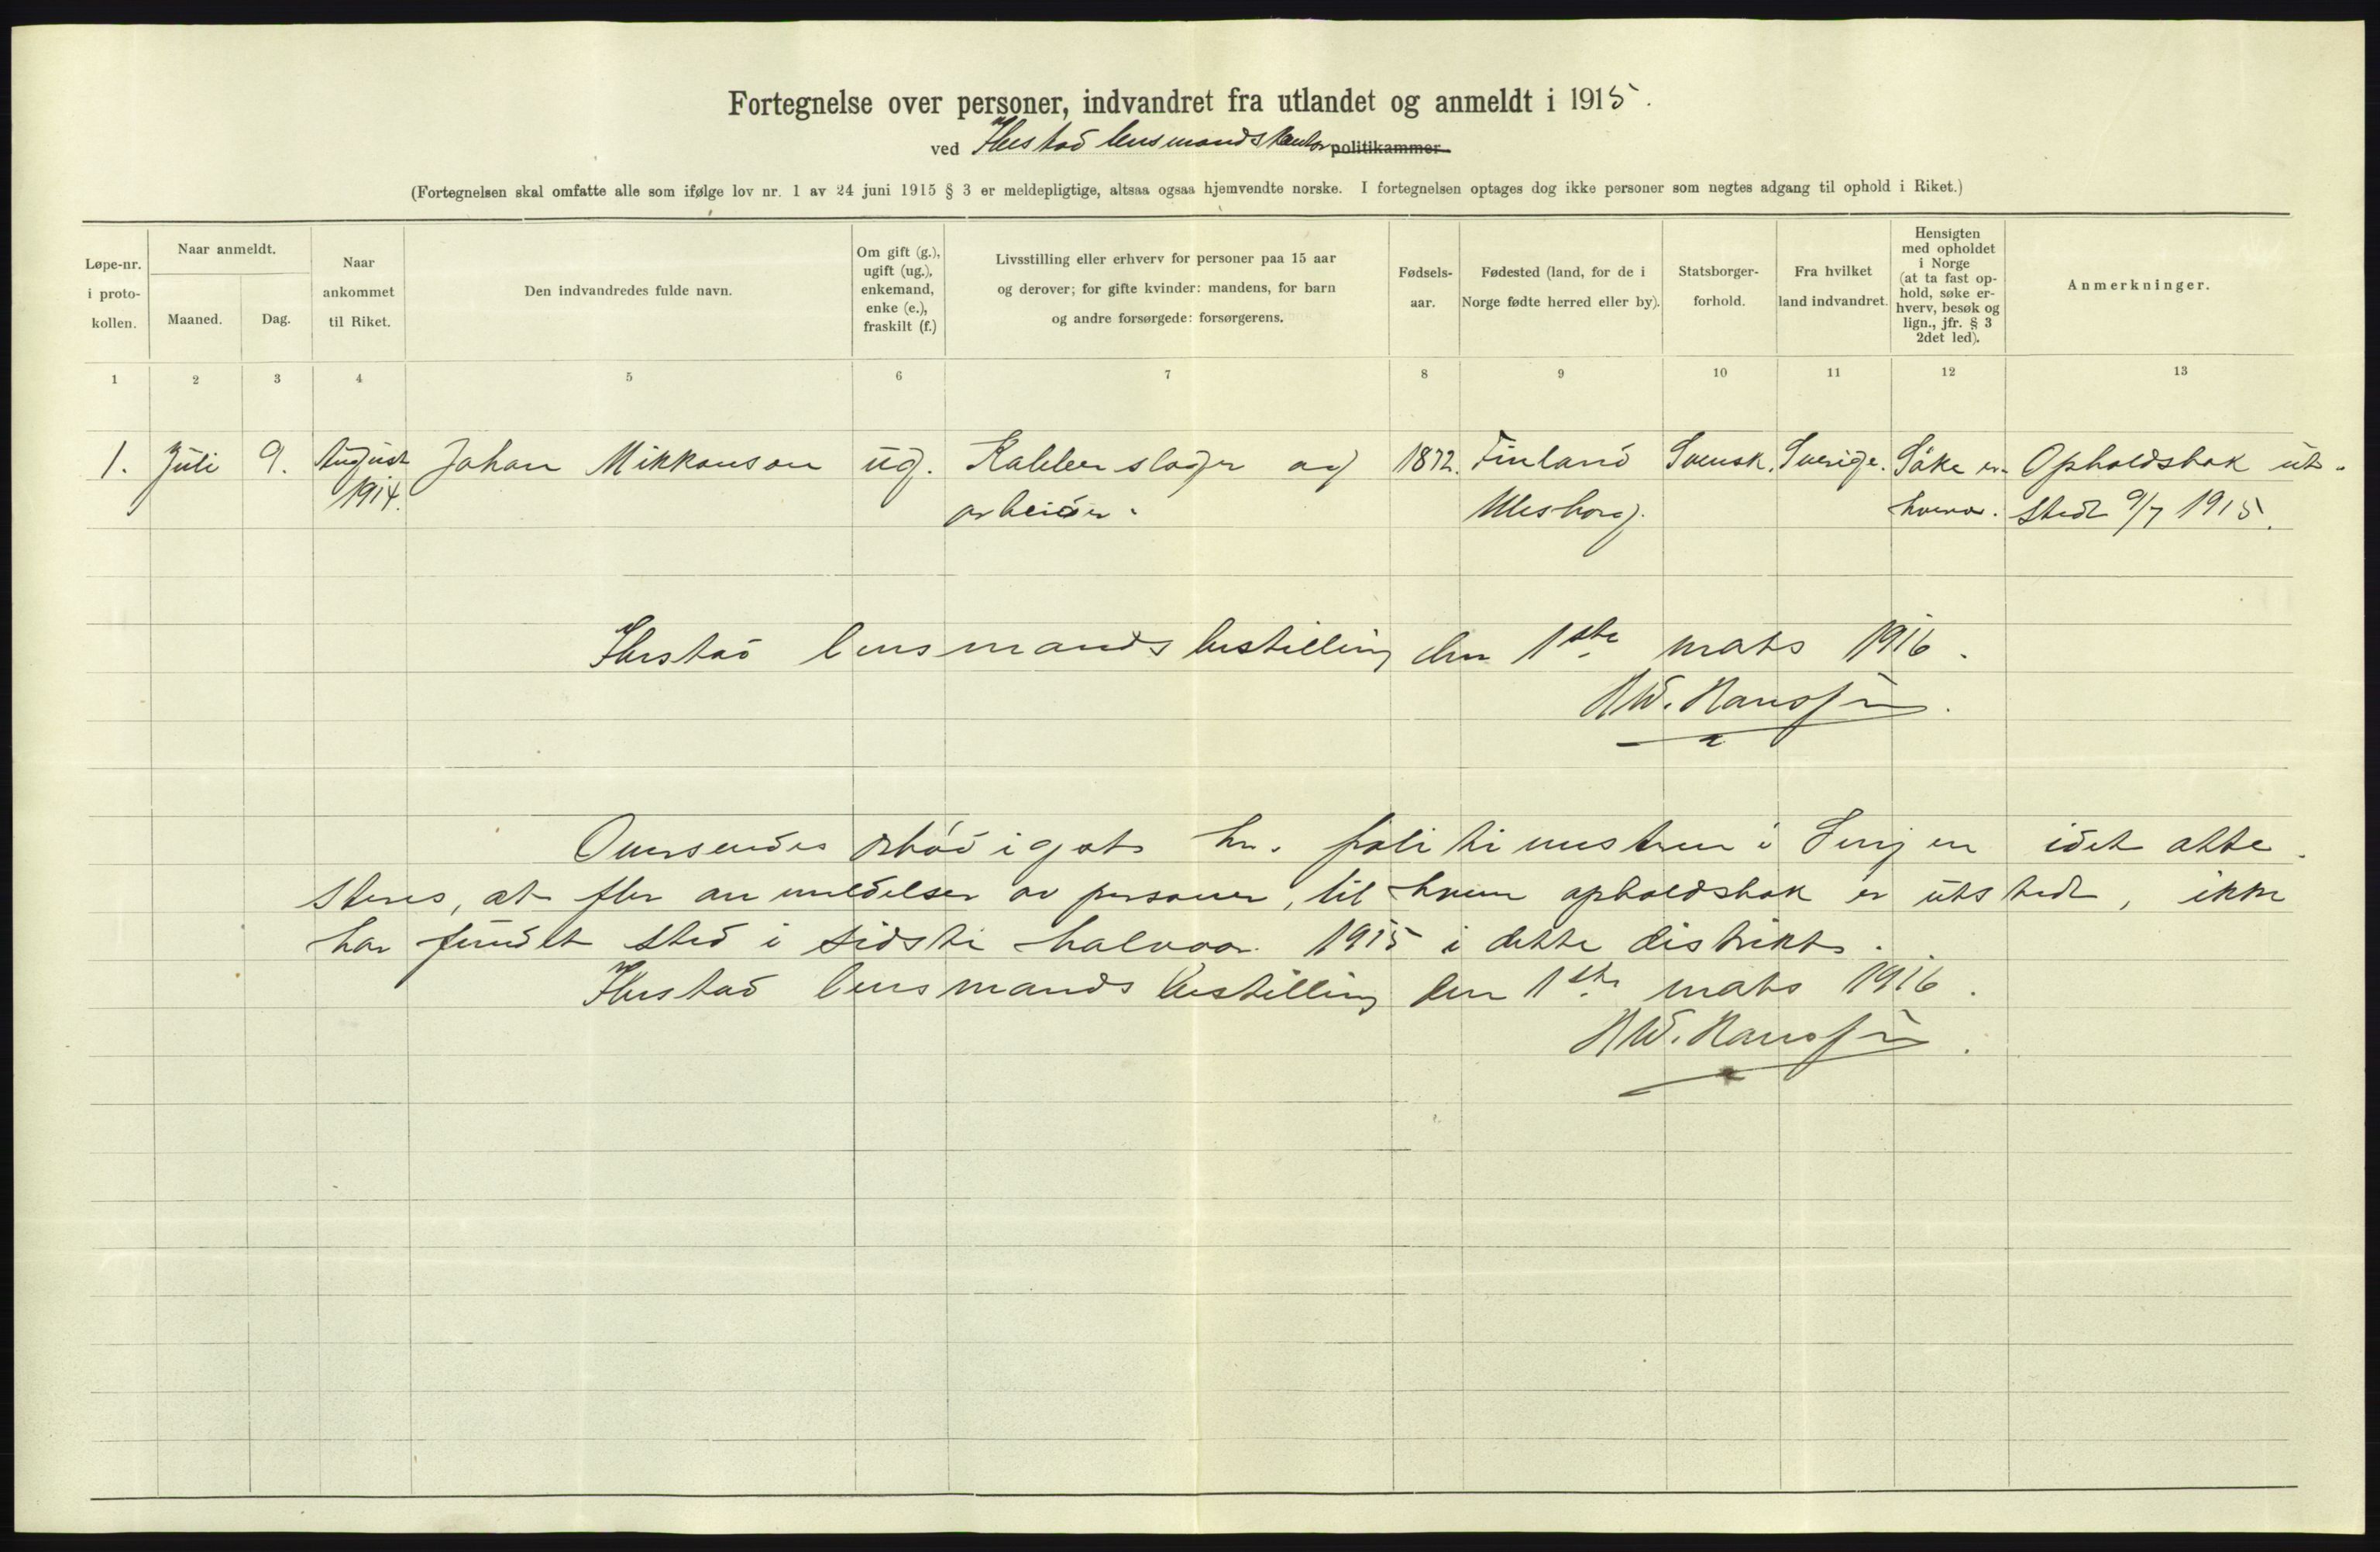 Fortegnelse over personer, indvandret fra utlandet og anmeldt i 1915.
ved Ibestad lensmandskontor politikammer
(Fortegnelsen skal omfatte alle som ifølge lov nr. 1 av 24 juni 1915 § 3 er meldepligtige, altsaa ogsaa hjemvendte norske. I fortegnelsen optages dog ikke personer som negtes adgang til ophold i Riket.)
Løpe-nr.
i proto-
kollen.
Naar anmeldt.
Maaned.
Dag.
Naar
ankommet
til Riket.
Den indvandredes fulde navn.
Om gift (g.),
ugift (ug.),
enkemand,
enke (e.),
fraskilt (f.)
Livsstilling eller erhverv for personer paa 15 aar
og derover; for gifte kvinder: mandens, for barn
og andre forsørgede: forsørgerens.
Fødsels-
aar.
Fødested (land, for de i
Norge fødte herred eller by).
Statsborger-
forhold.
Fra hvilket
land indvandret.
Hensigten
med opholdet
i Norge
(at ta fast op-
hold, søke er-
hverv, besøk og
lign., jfr. § 3
2det led).
Anmerkninger.
1 2 3 4 5 6 7 8 9 10 11 12 13
1. Juli 9. August Johan Mikkonson ug. Kobberslager og 1872. Finland Svensk. Sverige. Søke er- Opholdsbok ut-
1914. arbeider. Ulesborg. hverv. stedt 9/7 1915.
Ibestad lensmandsbestilling den 1ste mars 1916.
H.W. Hanssen.
Oversendes ærbødigst hr. politimesteren i Senjen idet atte-
steres, at fler anmeldelser av personer, til hvem opholdsbok er utstedt, ikke
har fundet sted i sidste halvaar 1915 i dette distrikt.
Ibestad lensmandsbestilling den 1ste mars 1916.
H.W. Hanssen.